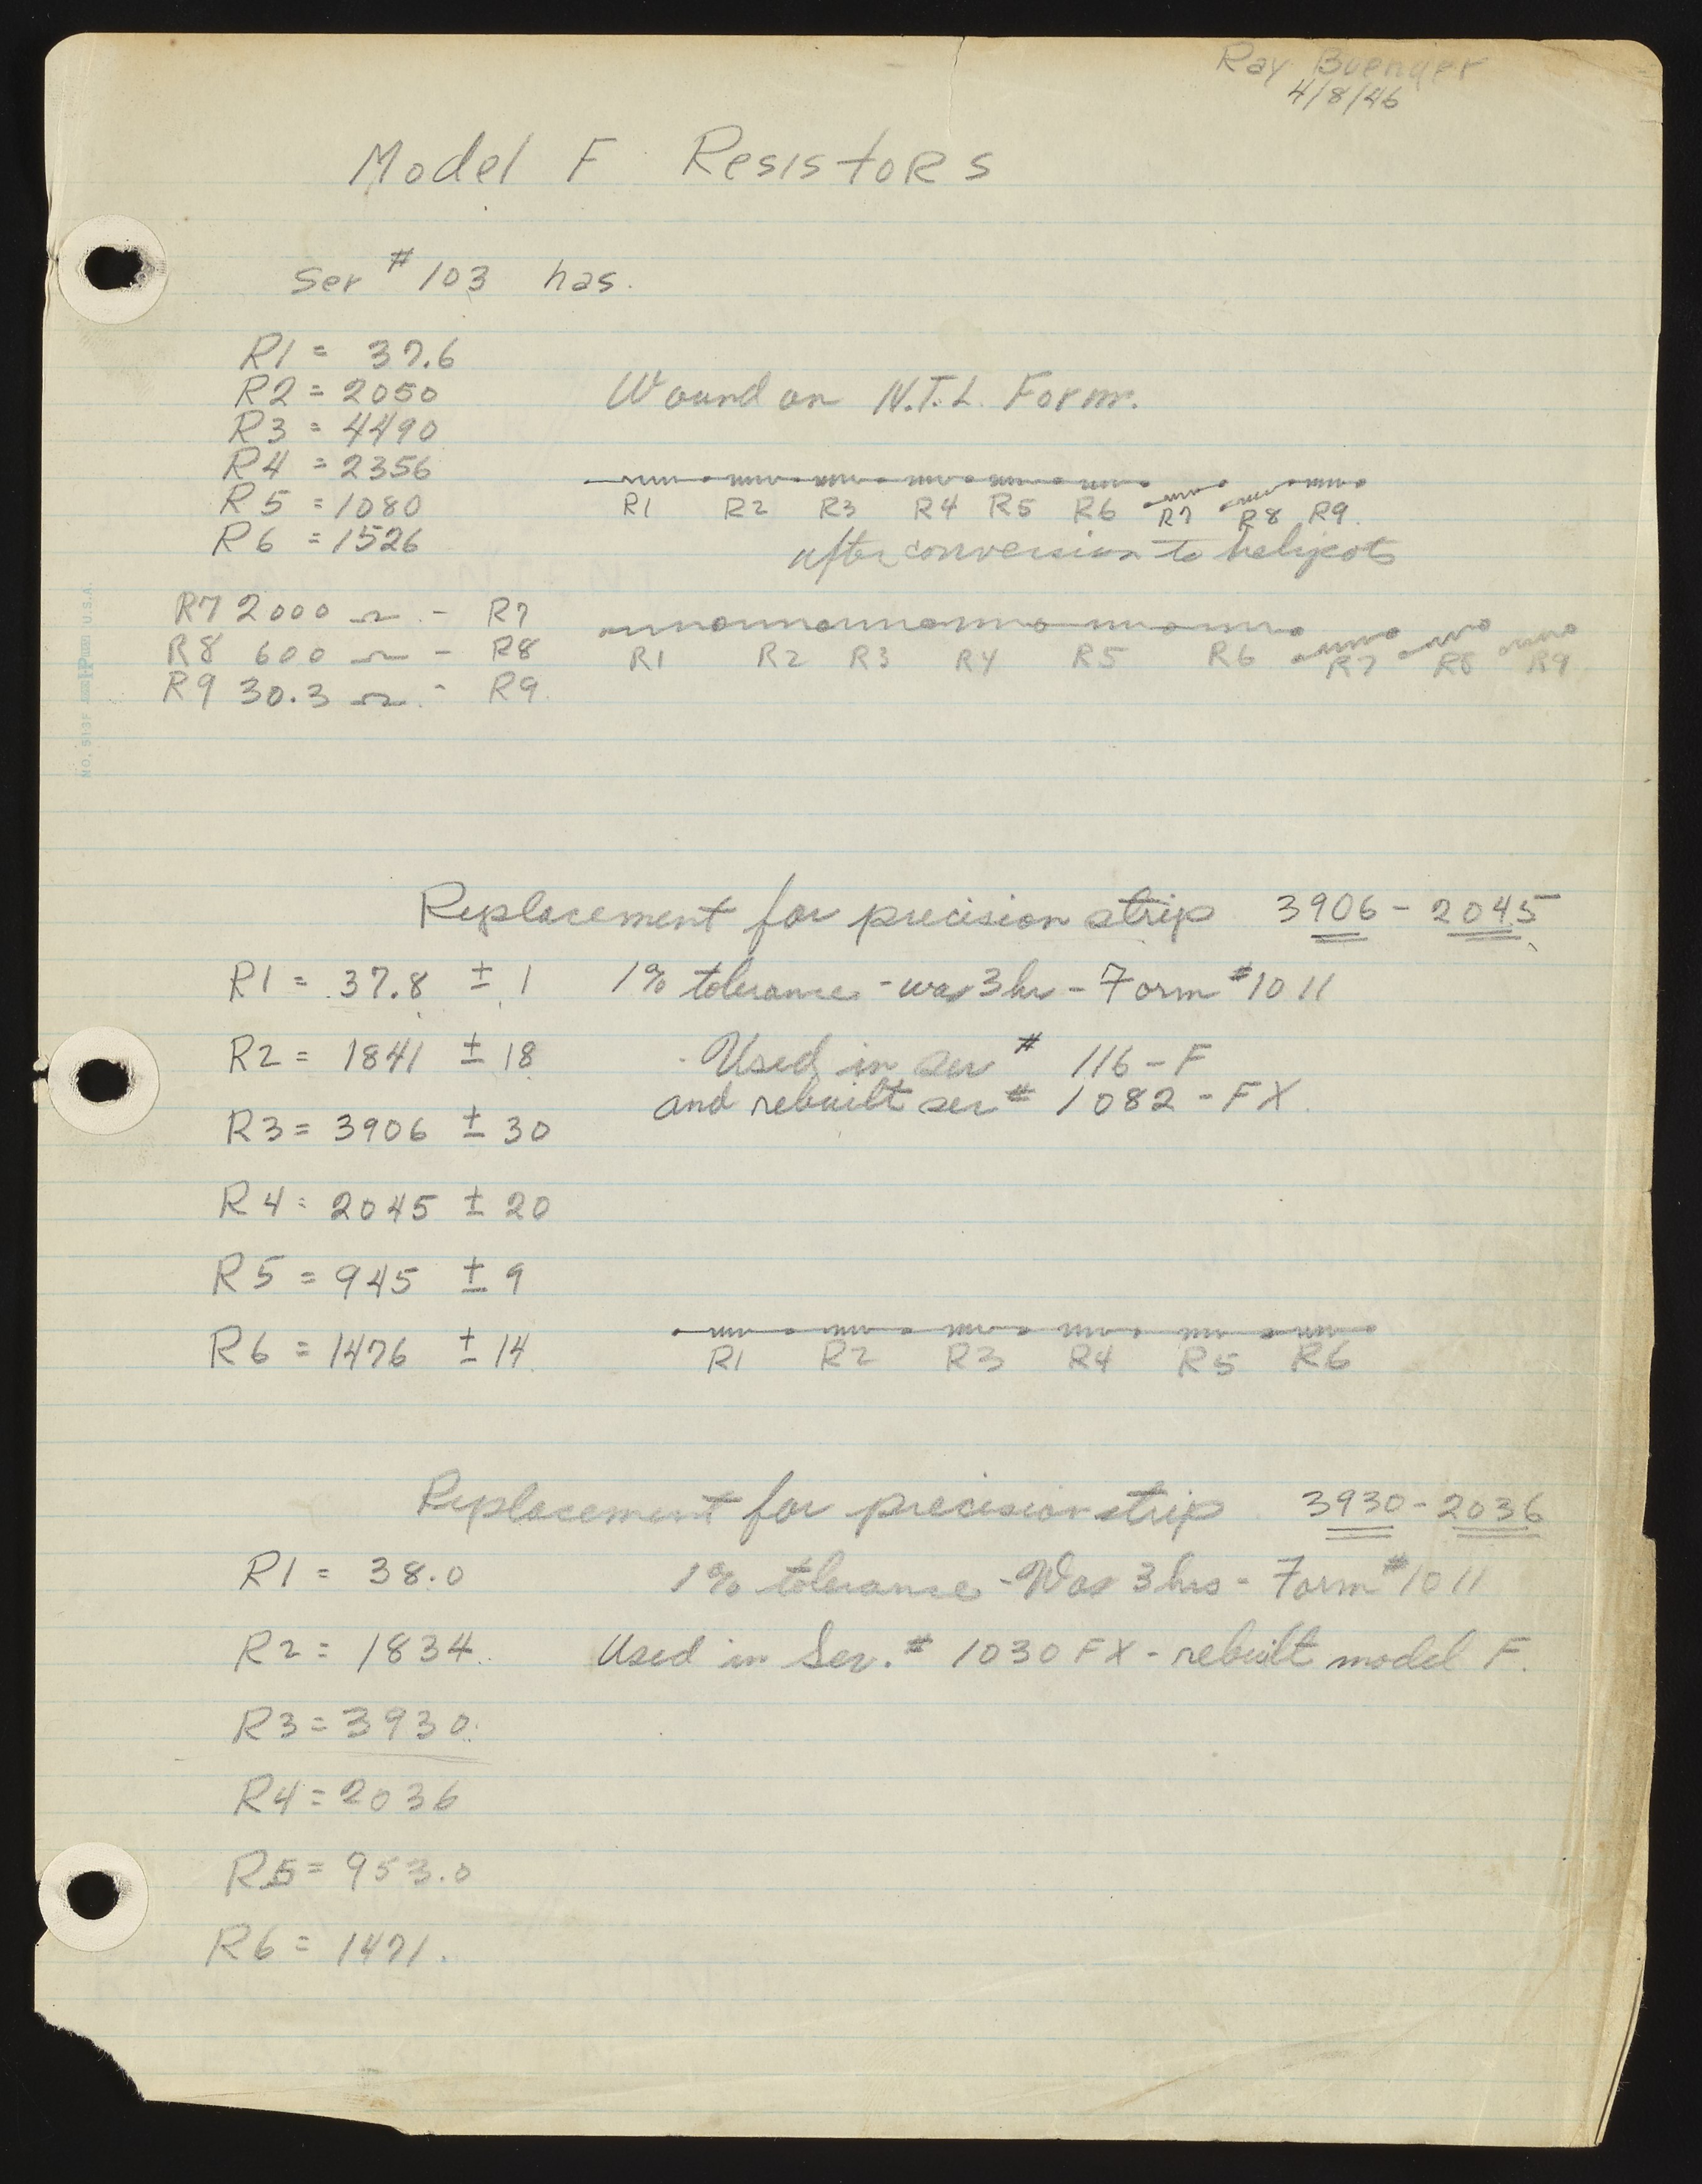 Ray Buenger
4/8/46
Model F Resistors
Ser # 103 has.
R1 = 37.6
R2 = 2050 Wound on N.T.L. Form.
R3 = 4490
R4 = 2356
R5 = 1080 R1 R2 R3 R4 R5 R6 R7 R8 R9
R6 = 1526 after conversion to helipots
R7 2000 Ω - R7
R8 600 Ω - R8 R1 R2 R3 R4 R5 R6 R7 R8 R9
R9 30.3 Ω - R9
Replacement for precision strip 3906 - 2045
R1 = 37.8 ± .1 1% tolerance - was 3 hr - Form #1011
R2 = 1841 ± 18 Used in ser # 116 - F
and rebuilt ser # 1082 - FX.
R3 = 3906 ± 30
R4 = 2045 ± 20
R5 = 945 ± 9
R6 = 1476 ± 14 R1 R2 R3 R4 R5 R6
Replacement for precision strip 3930 - 2036
R1 = 38.0 1% tolerance - Was 3 hrs - Form #1011
R2 = 1834. Used in Ser. # 1030 FX - rebuilt model F.
R3 = 3930.
R4 = 2036
R5 = 953.0
R6 = 1471.